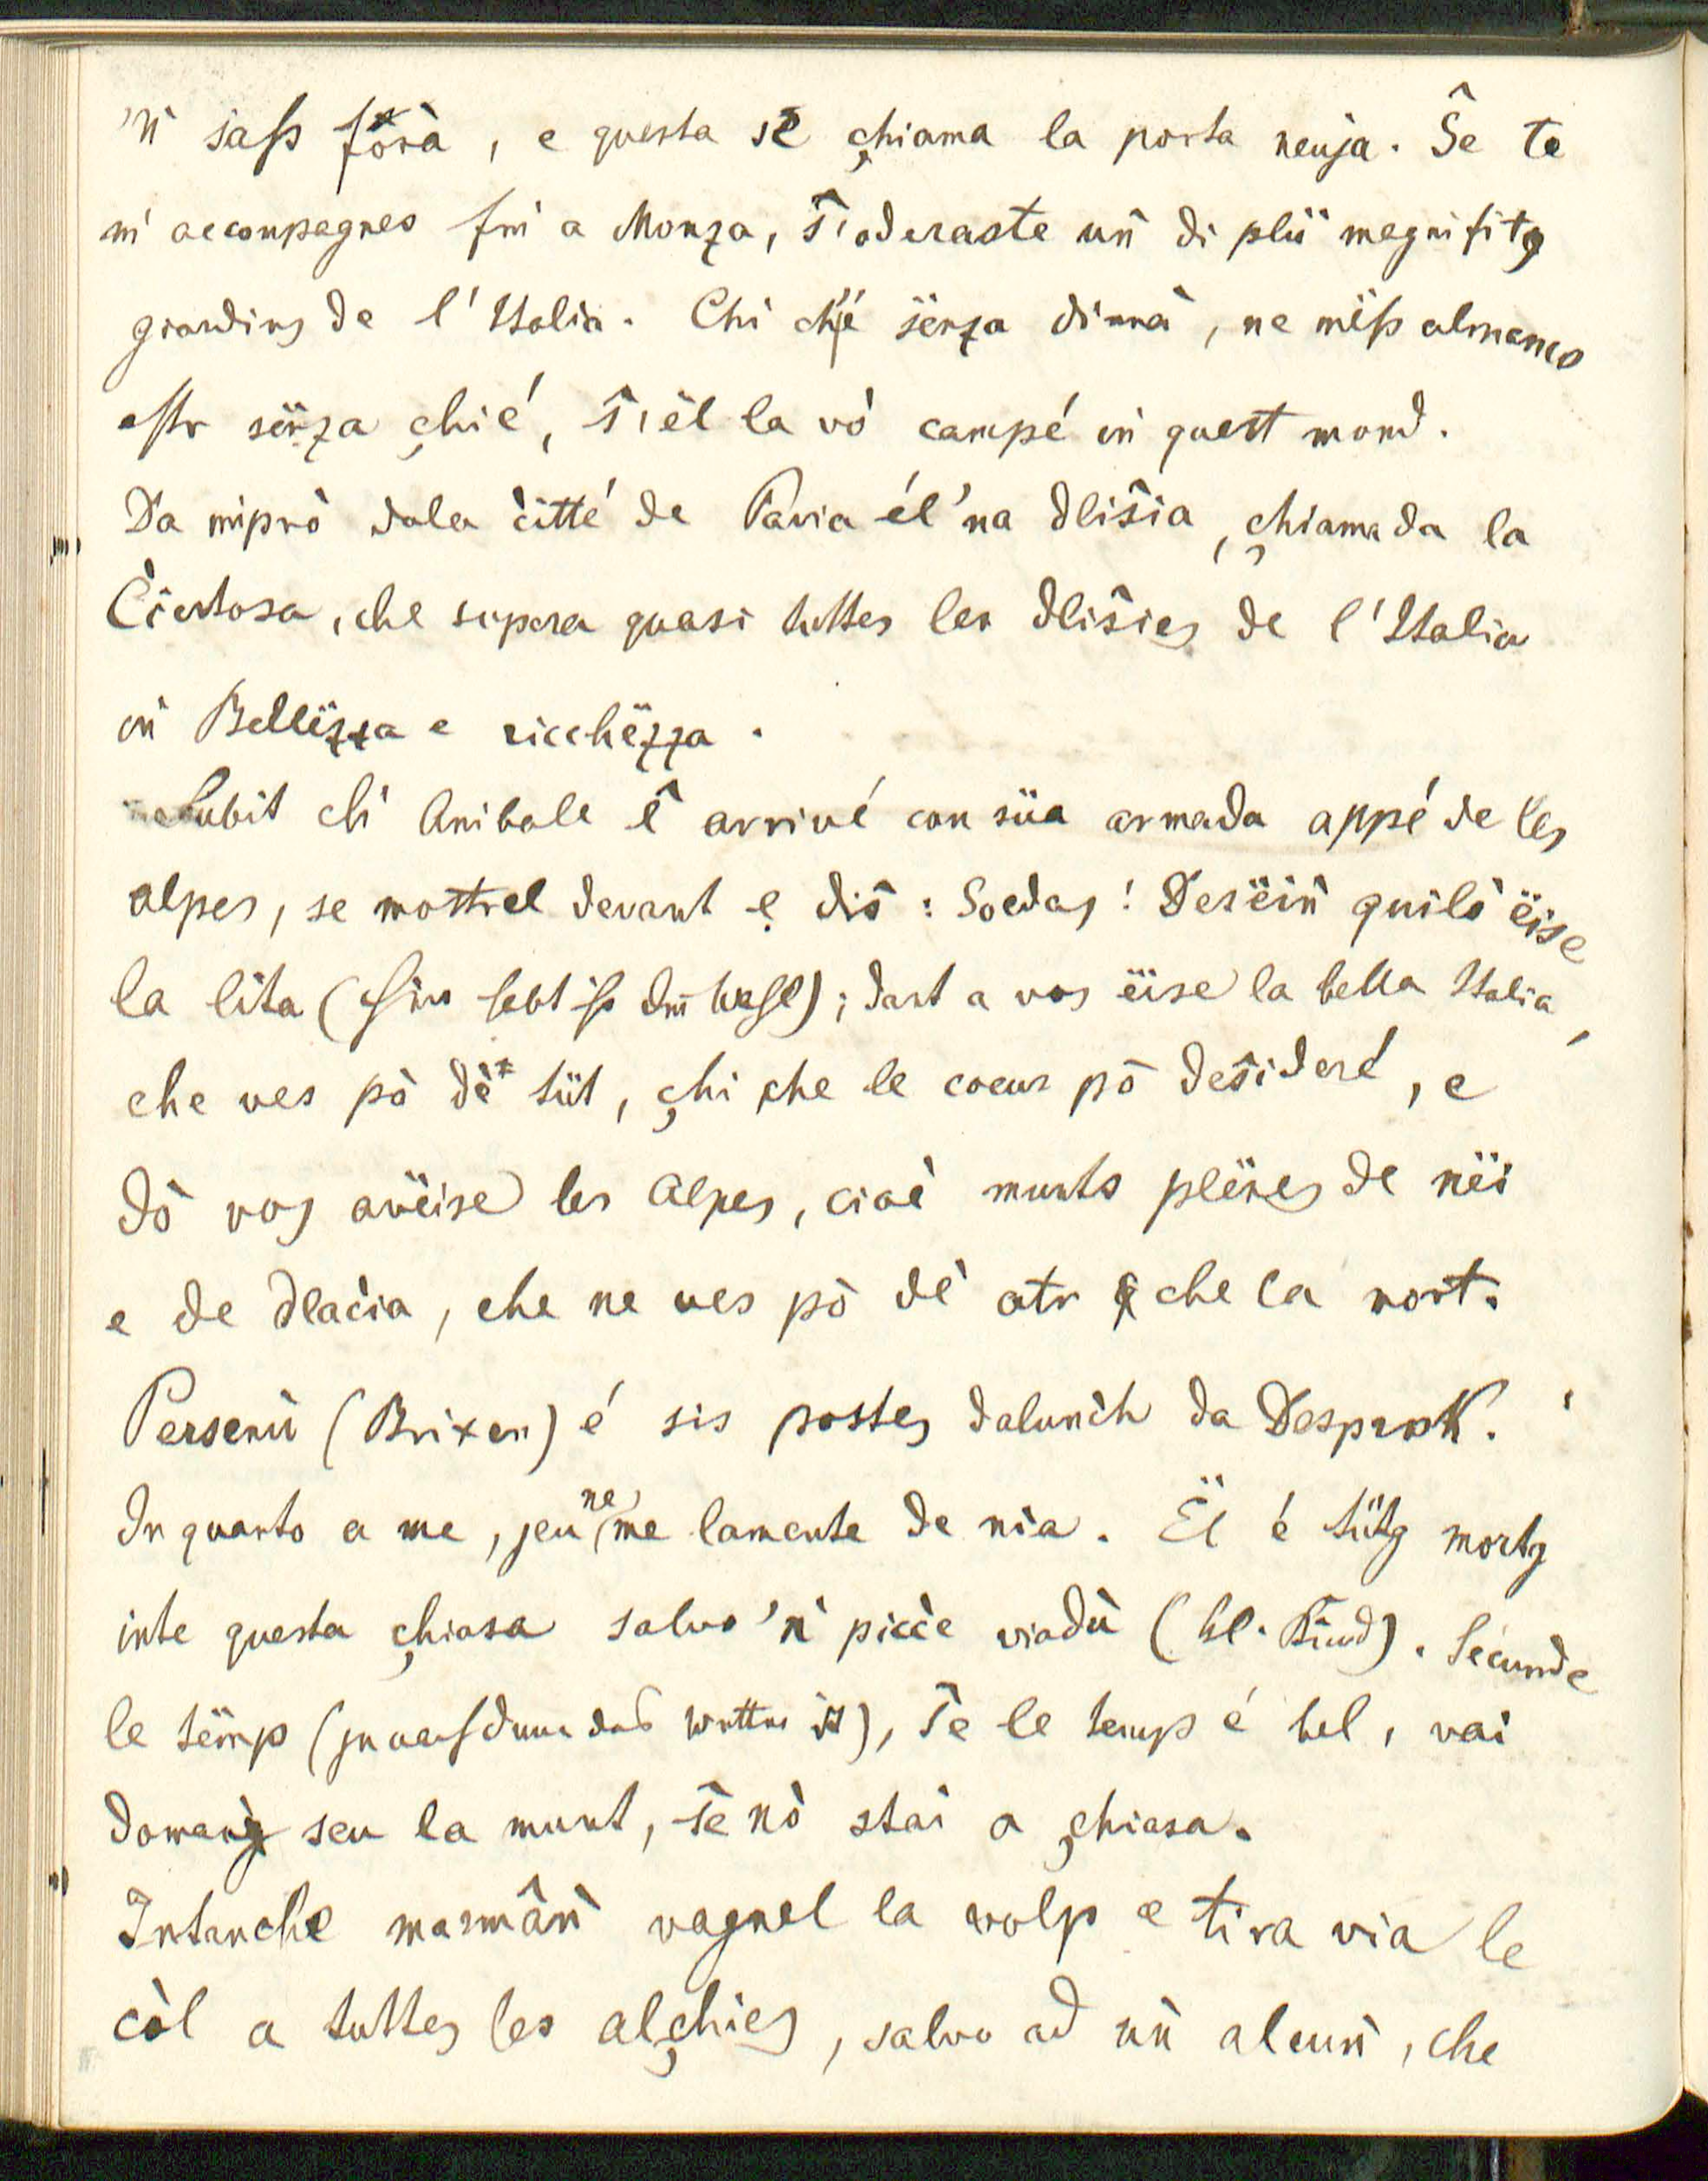 'ǹ saß förà, e questa se çhiama la porta neuja. Ŝe te
m' accompagnes fin a Monza, ŝ'oderaste uǹ di plü megnifitg
giardins de l'Italia. Chi ch'é sënza dinnà, ne mëß almanco
eſtr sënza çhié, ŝ'ël la vò campé iǹ quest mond.
Da mipró dala c̀itté de Pavia él 'na dliŝia, çhiamada la
C̀iertosa, che supera quasi tuttes les dliŝies de l'Italia
iǹ Bellëzza e ricchëzza.
Subit ch' Anibale ê arrivé con süa armada appé de les
alpes, se mostrel devant e diŝ: Soedas! Desëiǹ quilò ëise
la lita (hier habt ihr die Wahl); dant a vos ëise la bella Italia,
che ves pò dè tüt, çhi che le coeur pò deŝideré, e
dò vos avëise les Alpes, cioè munts plënes de nëi
e de dlac̀ia, che ne ves pò dè atr che la mort.
Persenù (Brixen) é sis postes dalunc̀h da Desprok.
In quanto a me, jeu ne me lamente de nia. Ël é tütg mortg
inte questa çhiasa salvo 'ǹ pic̀c̀e viadù (kl. Kind). Secunde
le tëmp (je nachdem das Wetter ist), ŝe le temp é bel, vai
domaǹ seu la munt, ŝe nò stai a çhiasa.
Intanche marmâǹ vagnel la volp e tira via le
còl a tuttes les alçhies, salvo ad uǹ alcuǹ, che